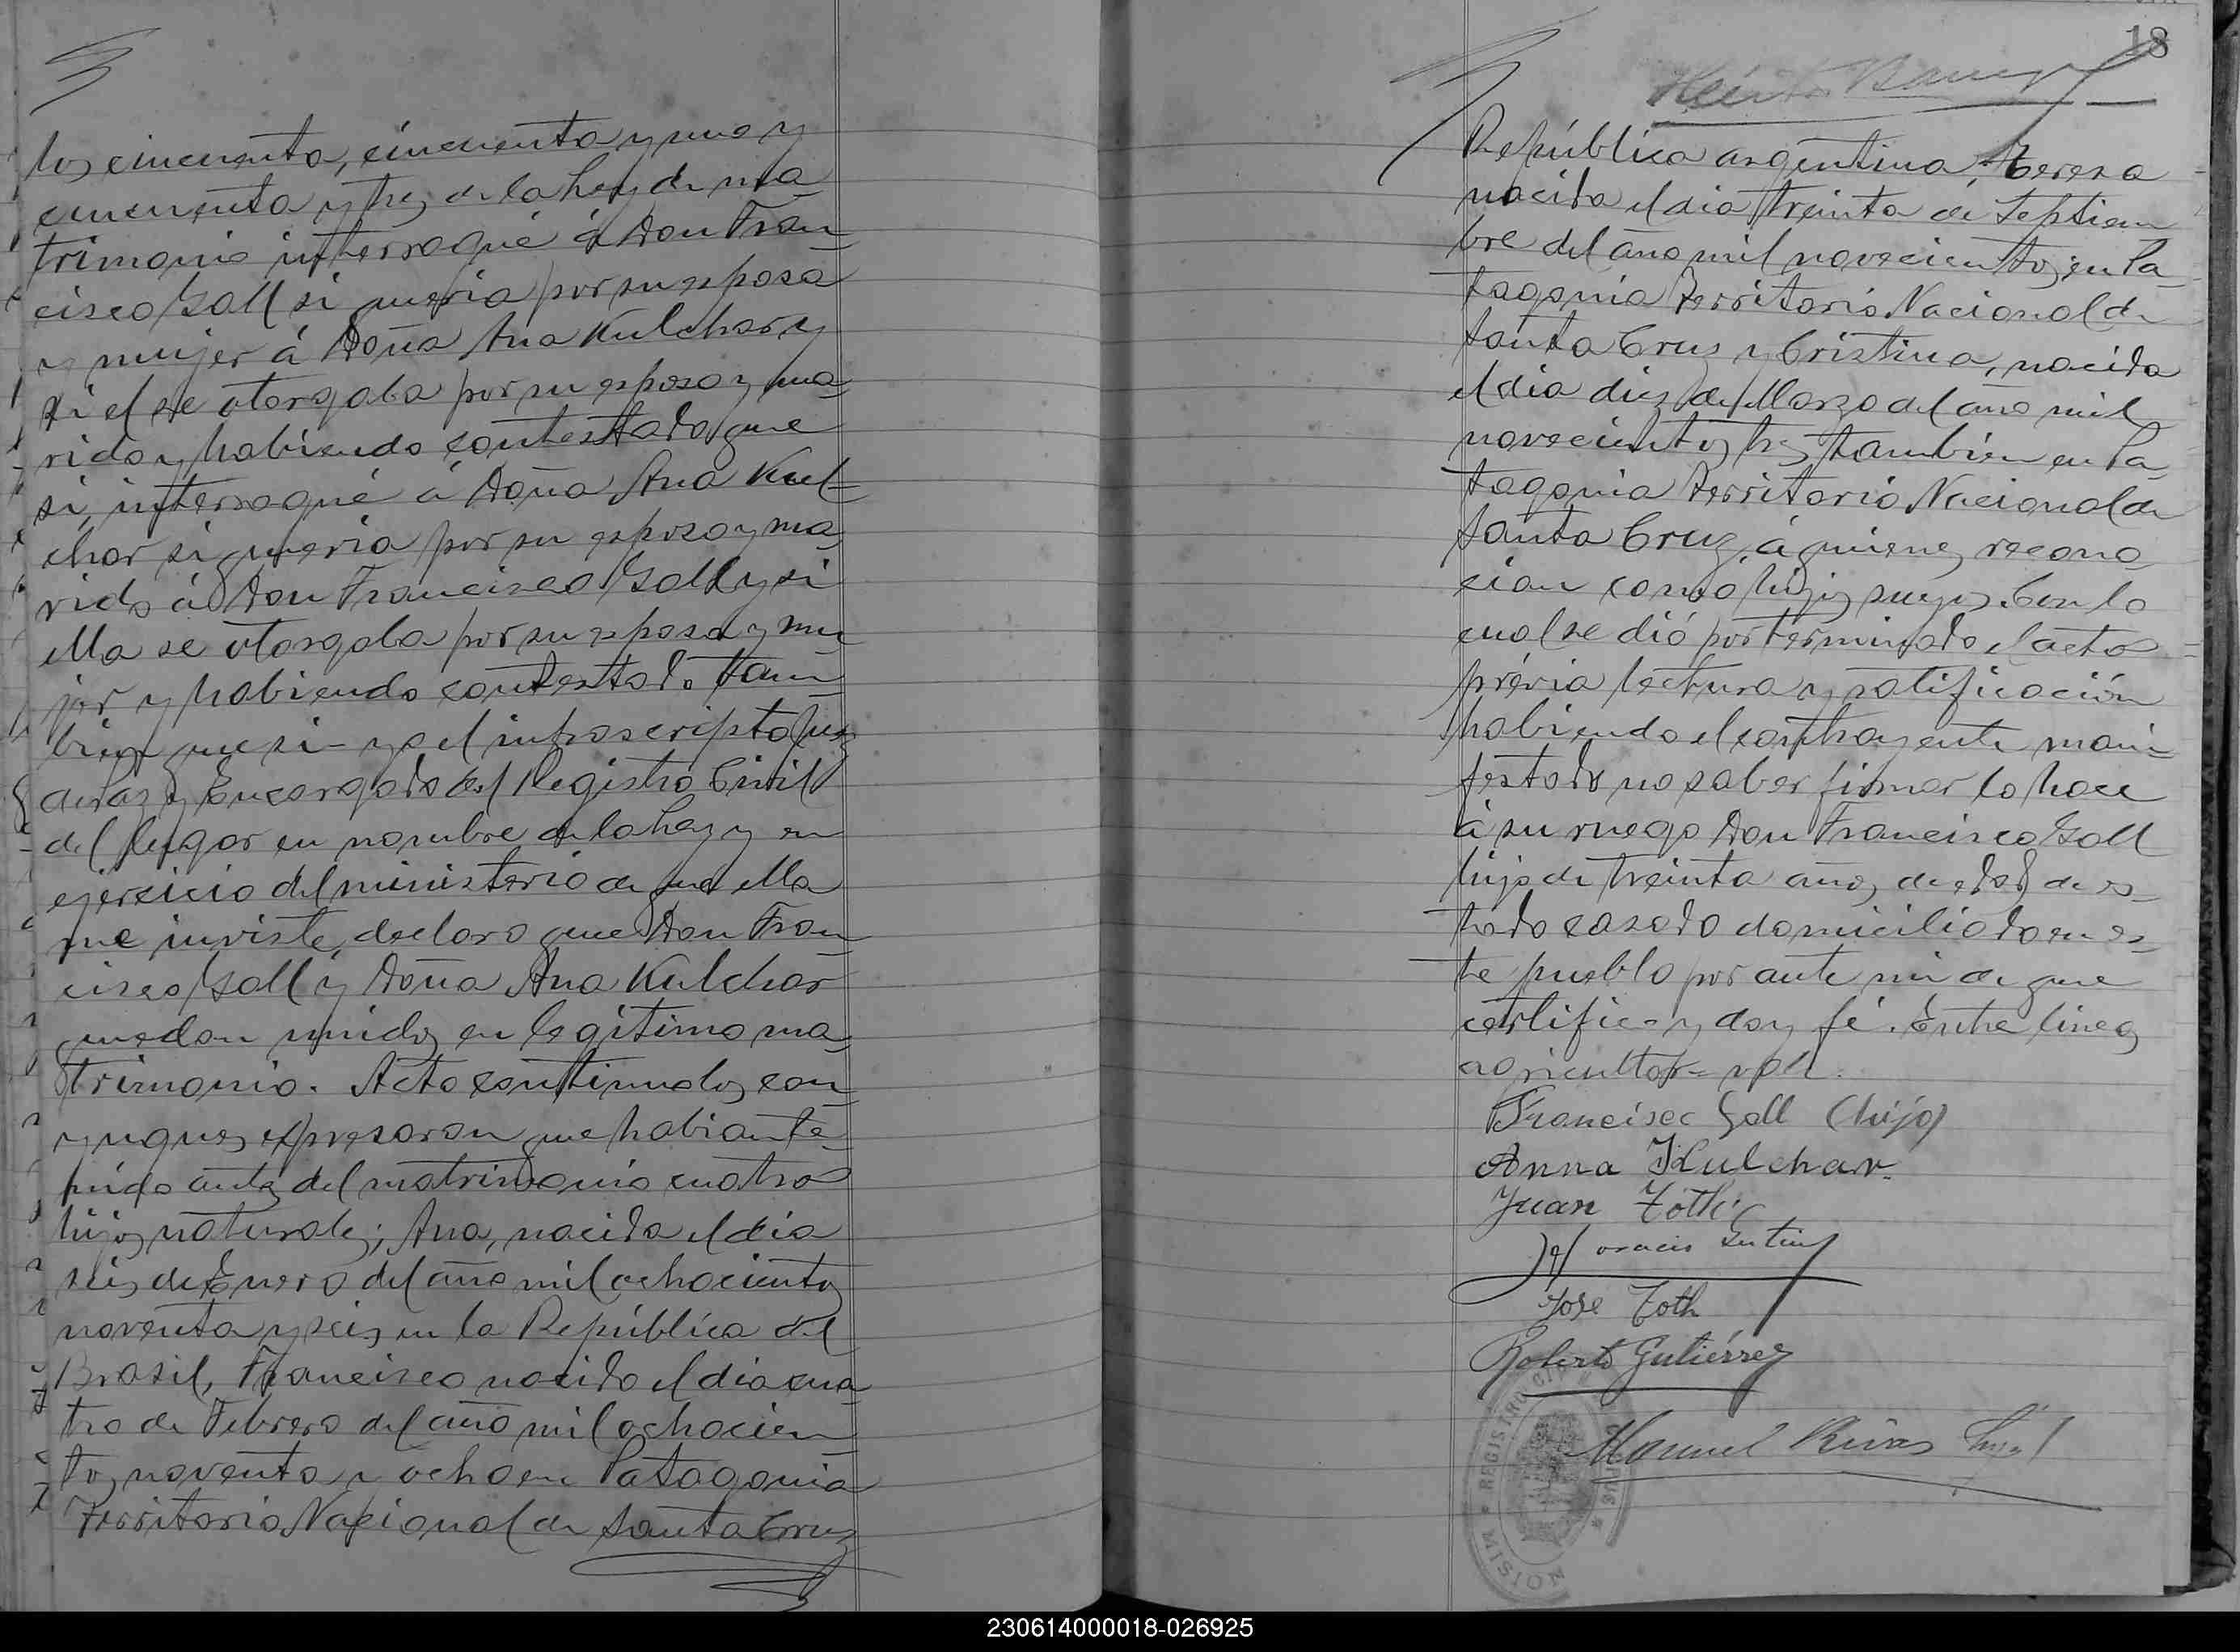 los cincuenta, cincuenta y uno y
cincuenta y tres de la ley de ma
trimonio interrogué á Don Fran
cisco Gall si queria por su esposa
y mujer á Doña Ana Kulchar y
si el se otorgaba por su esposo y ma
rido y habiendo contestado que
si, interrogué á Doña Ana Kul=
char si queria por su esposo y ma
rido á Don Francisco Gall y si
ella se otorgaba por su esposa y mu
jer y habiendo contestado tam
bien que si- yo el infrascripto Juez
de Paz y Encargado del Registro Civil
del lugar en nombre de la ley y en
ejercicio del ministerio de que ella
me inviste, declaro que Don Fran
cisco Gall y Doña Ana Kulchar
quedan unidos en legitimo ma
trimonio. Acto continuo los con
yugues expresaron que habian te
nido antes del matrimonio cuatro
hijos naturales; Ana, nacida el dia
seis de Enero del año mil ochocientos
noventa y seis en la República del
Brasil, Francisco nacido el dia cua
tro de Febrero del año mil ochocien
tos noventa y ocho en Patagonia
Territorio Nacional de Santa Cruz
18
República argentina, Teresa
nacida el dia treinta de Septiem
bre del año mil novecientos en Pa
tagonia Territorio Nacional de
Santa Cruz y Cristina, nacida
el dia diez de Marzo del año mil
novecientos tres tambien en Pa
tagonia Territorio Nacional de
Santa Cruz, á quienes recono
cian como hijos suyos. Con lo
cual se dió por terminado el acto
prévia lectura y ratificación
habiendo el contrayente mani
festado no saber firmar lo hace
á su ruego Don Francisco Gall
hijo de treinta años de edad de es
tado casado domiciliado en es
te pueblo por ante mi de que
certifico y doy fé. Entre lineas
agricultor= vale.
Francisco Gall (hijo)
Anna Kulchar.
Juan Tóth
Jose Toth
Roberto Gutiérrez
REGISTRO CIVIL
MISIONES
Manuel Rivas
230614000018-026925